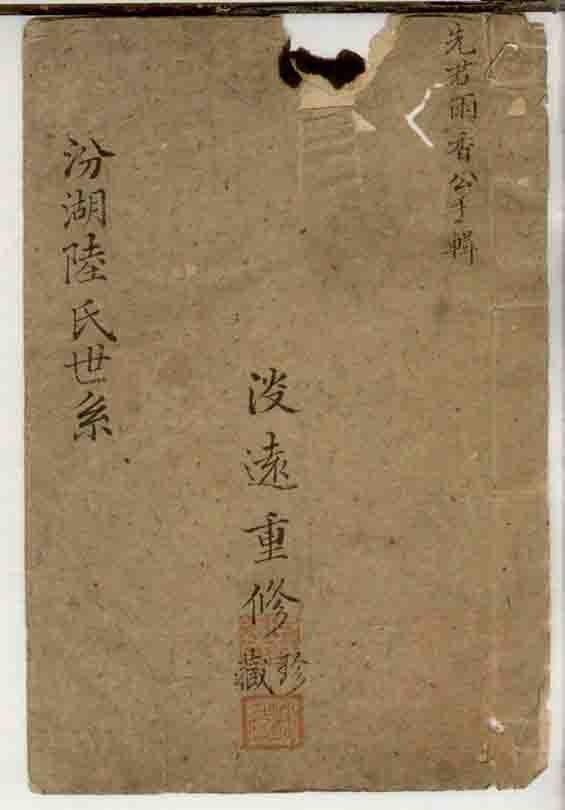 先君雨香公手輯
淡遠重修
珍藏
汾湖陸氏世系